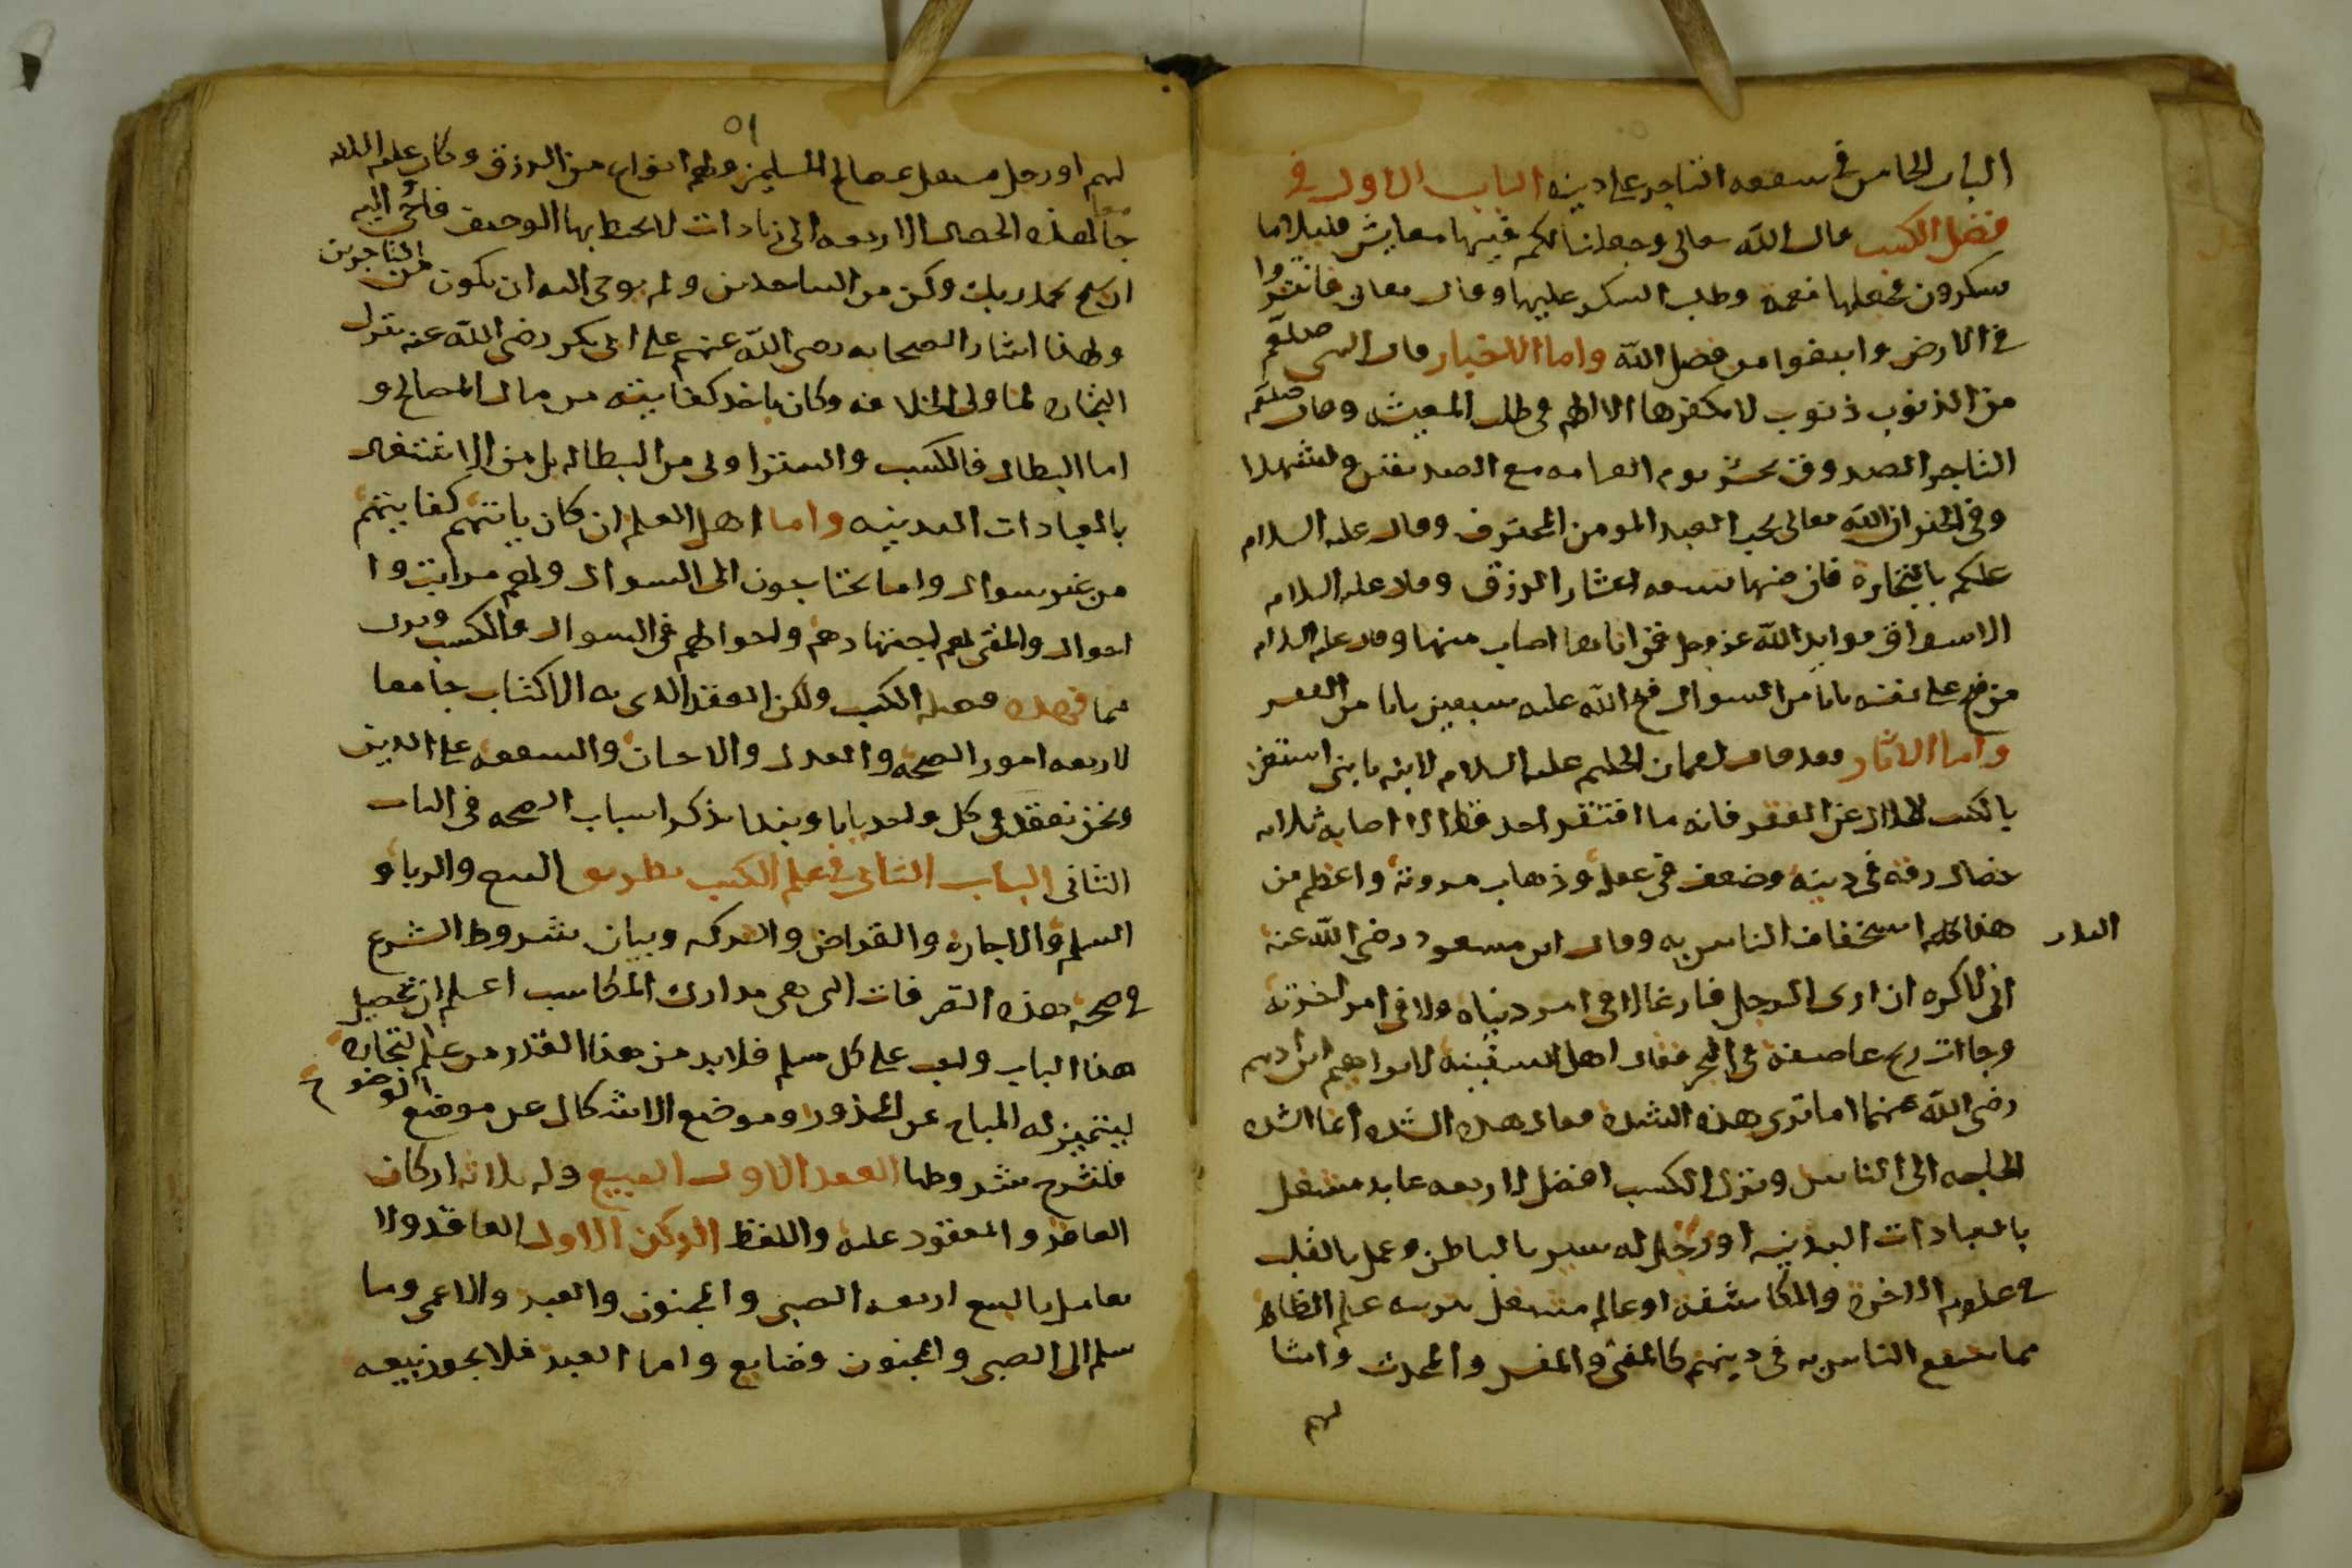 الباب الخامس في شفقه التاجر على دينه الباب الاول في
فضل الكسب قال الله تعالى وجعلنا لكم فيها معايش قليلا ما
تشكرون فجعلها نعمه وطلب الشكر عليها وقال تعالى فانتشروا
في الارض وابتغوا من فضل الله واما الاخبار قال النبي صلعم
من الذنوب ذنوب لا يكفرها الا الهم في طلب المعيشه وقال صلعم
التاجر الصدوق يحشر يوم القيامه مع الصديقين والشهدا
وفي الخبر ان الله تعالى يحب العبد المومن المحترف وقال عليه السلام
عليكم بالتجارة فان فيها تسعه اعشار الرزق وقال عليه السلام
الاسواق موايد الله عز وجل فمن اتاها اصاب منها وقال عليه السلام
من فتح على نفسه بابا من السوال فتح الله عليه سبعين بابا من الفقر
واما الاثار فقد قال لقمان الحكيم عليه السلام لابنه يا بني استغن
بالكسب الحلال عن الفقر فانه ما افتقر احد قط الا اصابه ثلاث
خصال رقه في دينه وضعف في عقله وذهاب مروته واعظم من
هذا كله استخفاف الناس به وقال ابن مسعود رضي الله عنه
اني لاكره ان ارى الرجل فارغا لا في امر دنياه ولا في امر اخرته
وجاات ريح عاصفة في البحر فقال اهل السفينة لابراهيم ابن ادهم
رضي الله عنهما اما ترى هذه الشده فقال ما هذه الشده انما الشده
الحاجه الى الناس وترك الكسب افضل لاربعه عابد مشتغل
بالعبادات البدنيه او رجل له سير بالباطن وعمل بالقلب
في علوم الاخرة والمكاشفة او عالم مشتغل بتربيه علم الظاهر
مما ينتفع الناس به في دينهم كالمفتي والمفسر والمحدث وامثا
لهم
٥١
لهم او رجل مشتغل بمصالح المسلمين ولهم اقوام من الرزق وكان عليه السلام
جامعا لهذه الخصال الاربعه الى زيادات لا يحيط بها الوصف فاوحي اليه
ان سبح بحمد ربك وكن من الساجدين ولم يوحى اليه ان يكون من التاجرين
ولهذا اشار الصحابه رضي الله عنهم على ابي بكر رضي الله عنه بترك
التجاره لما ولي الخلافه وكان ياخذ كفايته من مال المصالح و
اما البطال فالكسب والستر اولى من البطاله بل من الاشتغال
بالعبادات البدنيه واما اهل العلم ان كان ياتيهم كفايتهم
من غير سوال واما يحتاجون الى السوال ولهم مراتب وا
احوال والمفتي لهم اجتهادهم واحوالهم في السوال والكسب وترك
مما فضيله الكسب ولكن العقد الذي به الاكتساب جامعا
لاربعه امور الصحه والعدل والاحسان والشفقه على الدين
ونحن نعقد في كل واحد بابا ونبدا بذكر اسباب الصحه في الباب
الثاني الباب الثاني في علم الكسب بطريق البيع والربا و
السلم والاجارة والقراض والشركه وبيان شروط الشرع
في صحه هذه التصرفات التي هي مدارك المكاسب اعلم ان تحصيل
هذا الباب واجب على كل مسلم فلابد من هذا القدر من علم التجارة
ليتميز له المباح عن المحذور وموضع الاشكال عن موضع الوضوح
فلنشرح شروطها العقد الاول البيع وله ثلاثه اركان
العاقد والمعقود عليه واللفظ الركن الاول العاقد ولا
يعامل بالبيع اربعه الصبي والمجنون والعبد والاعمى وما
سلم الى الصبي والمجنون وضايع واما العبد فلا يجوز بيعه